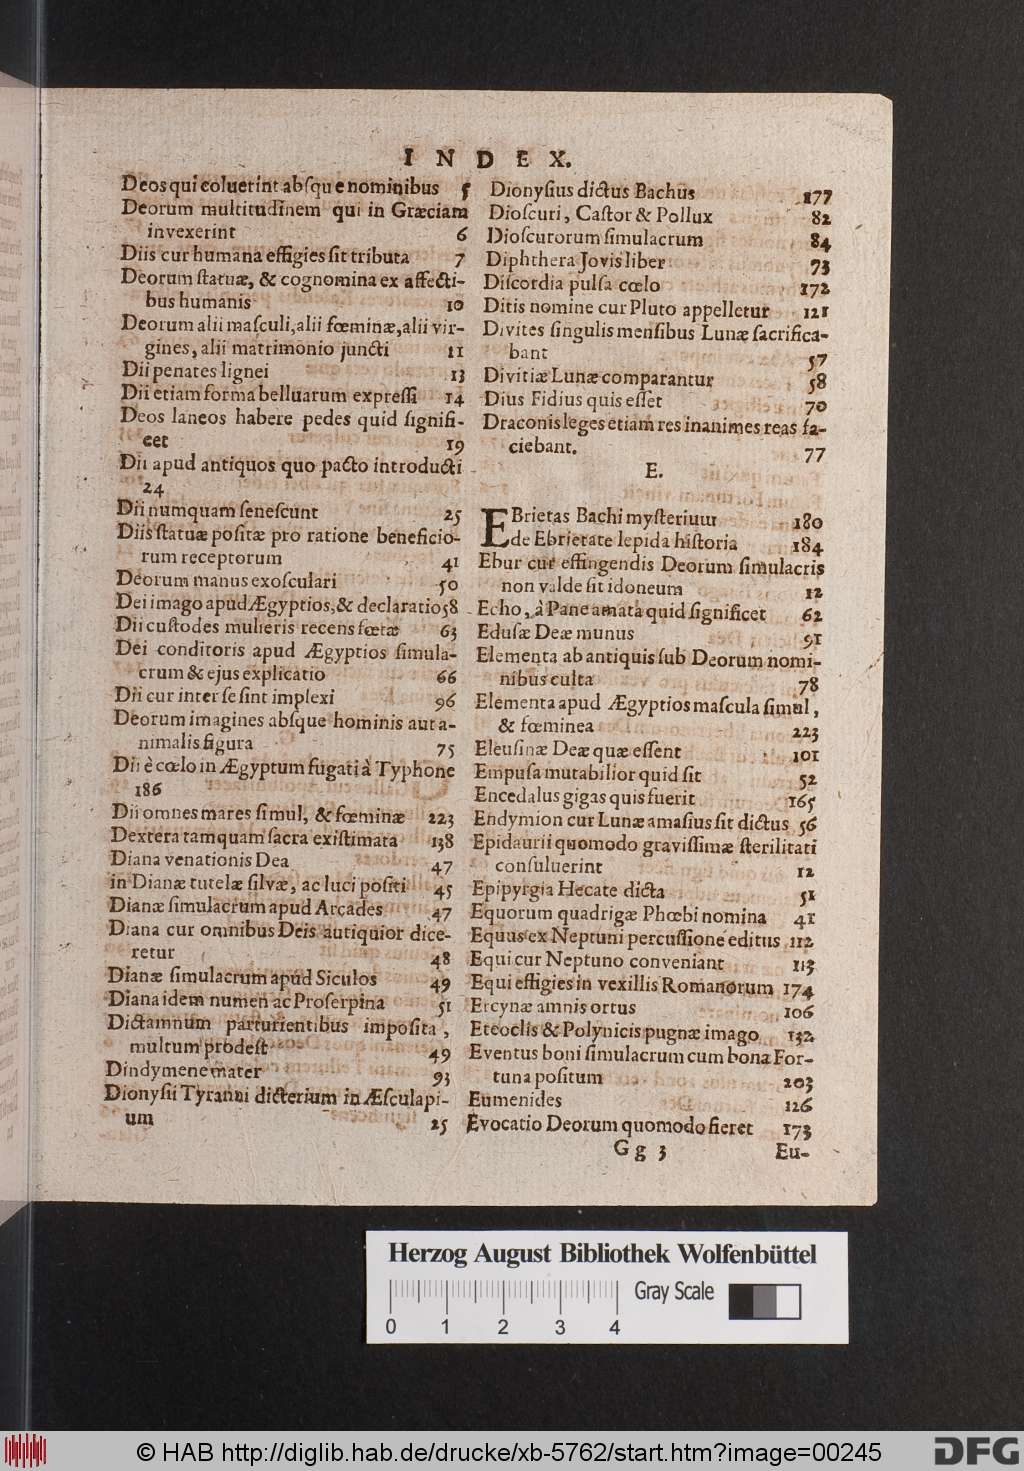 INDEX.
Deos qui coluerint absque nominibus 5
Deorum multitudinem qui in Græciam
invexerint 6
Diis cur humana effigies sit tributa 7
Deorum statuæ, & cognomina ex affecti-
bus humanis 10
Deorum alii masculi, alii fœminæ, alii vir-
gines, alii matrimonio juncti 11
Dii penates lignei 13
Dii etiam forma belluarum expressi 14
Deos laneos habere pedes quid signifi-
cet 19
Dii apud antiquos quo pacto introducti
24
Dii numquam senescunt 25
Diis statuæ positæ pro ratione beneficio-
rum receptorum 41
Deorum manus exosculari 50
Dei imago apud Ægyptios, & declaratio 58
Dii custodes mulieris recens fœtæ 63
Dei conditoris apud Ægyptios simula-
crum & ejus explicatio 66
Dii cur inter se sint implexi 96
Deorum imagines absque hominis aut a-
nimalis figura 75
Dii è cœlo in Ægyptum fugati à Typhone
186
Dii omnes mares simul, & fœminæ 223
Dextera tamquam sacra existimata 138
Diana venationis Dea 47
in Dianæ tutelæ silvæ, ac luci positi 45
Dianæ simulacrum apud Arcades 47
Diana cur omnibus Deis autiquior dice-
retur 48
Dianæ simulacrum apud Siculos 49
Diana idem numen ac Proserpina 51
Dictamnum parturientibus imposita,
multum prodest 49
Dindymene mater 93
Dionysii Tyranni dicterium in Æsculapi-
um 25
Dionysius dictus Bachus 177
Dioscuri, Castor & Pollux 82
Dioscurorum simulacrum 84
Diphthera Jovis liber 73
Discordia pulsa cœlo 172
Ditis nomine cur Pluto appelletur 121
Divites singulis mensibus Lunæ sacrifica-
bant 57
Divitiæ Lunæ comparantur 58
Dius Fidius quis esset 70
Draconis leges etiam res inanimes reas fa-
ciebant. 77
E.
EBrietas Bachi mysterium 180
de Ebrietate lepida historia 184
Ebur cur effingendis Deorum simulacris
non valde sit idoneum 12
Echo, à Pane amata quid significet 62
Edusæ Deæ munus 91
Elementa ab antiquis sub Deorum nomi-
nibus culta 78
Elementa apud Ægyptios mascula simul,
& fœminea 223
Eleusinæ Deæ quæ essent 101
Empusa mutabilior quid sit 52
Encedalus gigas quis fuerit 165
Endymion cur Lunæ amasius sit dictus 56
Epidaurii quomodo gravissimæ sterilitati
consuluerint 12
Epipyrgia Hecate dicta 51
Equorum quadrigæ Phœbi nomina 41
Equus ex Neptuni percussione editus 112
Equi cur Neptuno conveniant 113
Equi effigies in vexillis Romanorum 174
Ercynæ amnis ortus 106
Eteoclis & Polynicis pugnæ imago 132
Eventus boni simulacrum cum bona For-
tuna positum 203
Eumenides 126
Evocatio Deorum quomodo fieret 173
Gg 3 Eu-
Herzog August Bibliothek Wolfenbüttel
Gray Scale
0 1 2 3 4
© HAB http://diglib.hab.de/drucke/xb-5762/start.htm?image=00245
DFG